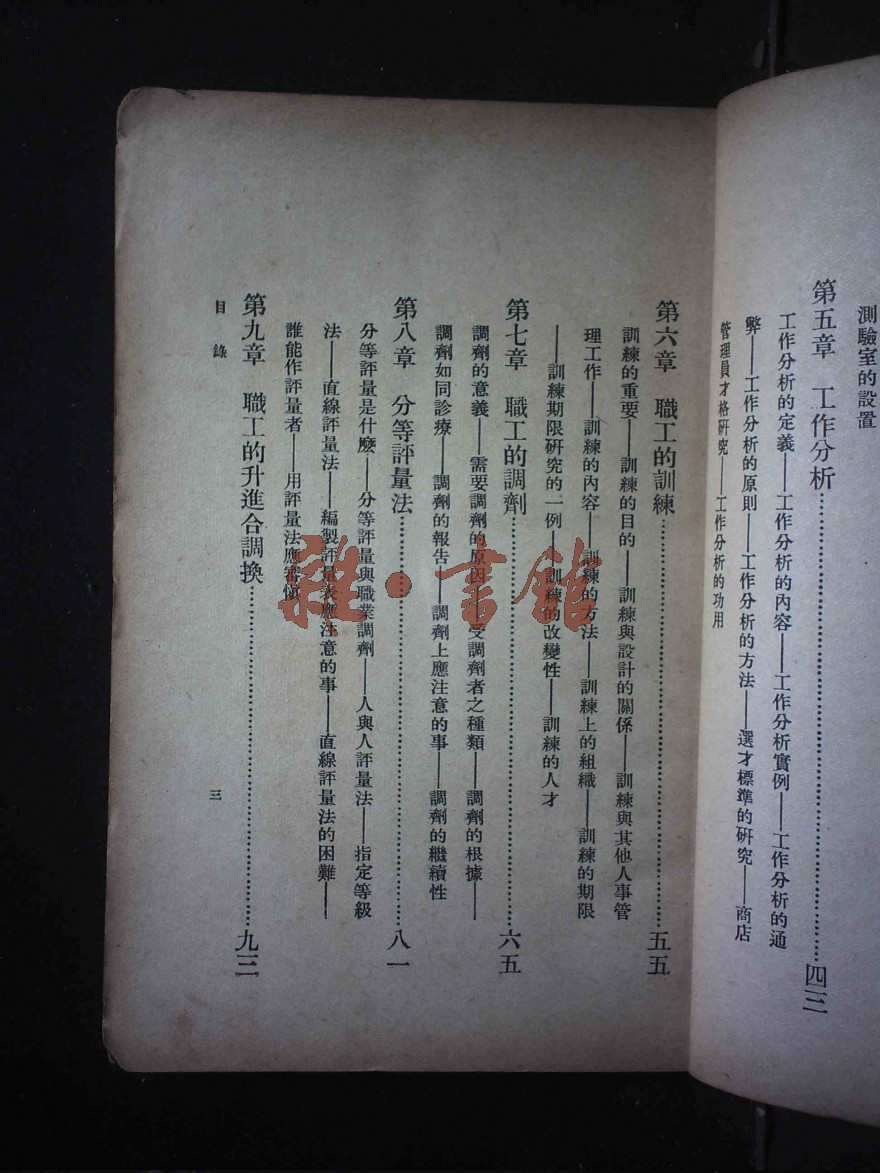 測驗室的設置
第五章　工作分析……四三
工作分析的定義——工作分析的內容——工作分析實例——工作分析的通
弊——工作分析的原則——工作分析的方法——選才標準的研究——商店
管理員才格研究——工作分析的功用
第六章　職工的訓練……五五
訓練的重要——訓練的目的——訓練與設計的關係——訓練與其他人事管
理工作——訓練的內容——訓練的方法——訓練上的組織——訓練的期限
——訓練期限研究的一例——訓練的改變性——訓練的人才
第七章　職工的調劑……六五
調劑的意義——需要調劑的原因——受調劑者之種類——調劑的根據——
調劑如同診療——調劑的報告——調劑上應注意的事——調劑的繼續性
第八章　分等評量法……八一
分等評量是什麼——分等評量與職業調劑——人與人評量法——指定等級
法——直線評量法——編製評量表應注意的事——直線評量法的困難——
誰能作評量者——用評量法應審慎
第九章　職工的升進合調換……九三
目錄
三
雜·書館